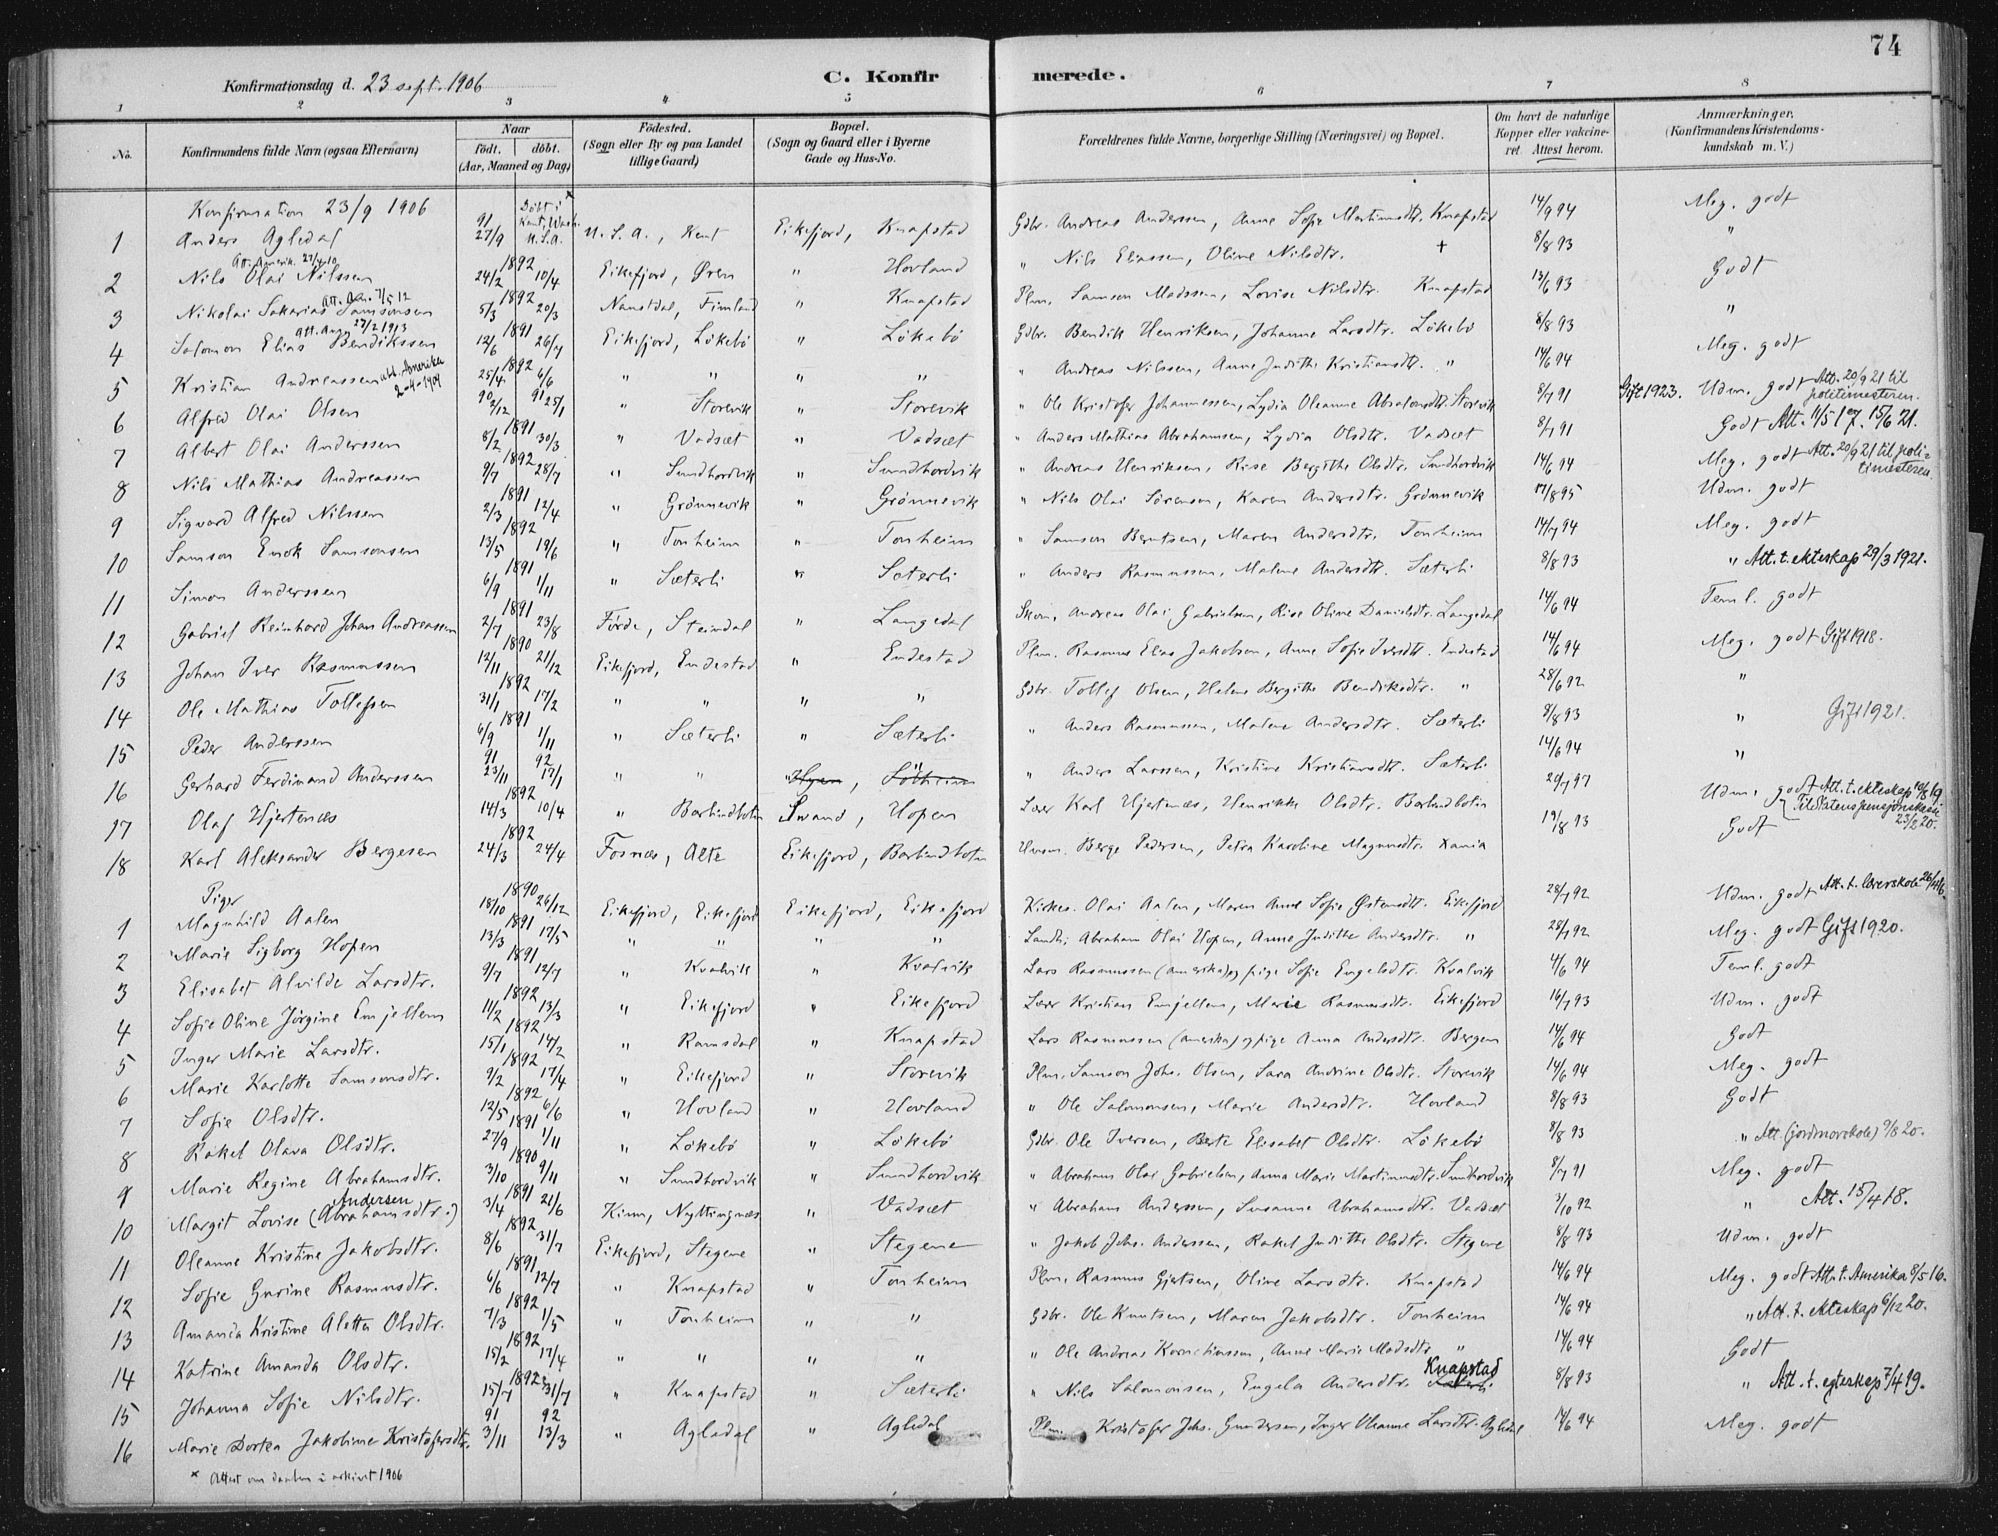 74
Konfirmationsdag d. 23 sept. 1906
C. Konfirmerede.
1 2 3 4 5 6 7 8
No. Konfirmandens fulde Navn (ogsaa Efternavn) Naar født. døbt. (Aar, Maaned og Dag) Fødested. (Sogn eller By og paa Landet tillige Gaard) Bopæl. (Sogn og Gaard eller i Byerne Gade og Hus-No. Forældrenes fulde Navne, borgerlige Stilling (Næringsvei) og Bopæl. Om havt de naturlige Kopper eller vakcineret. Attest herom. Anmærkninger. (Konfirmandens Kristendomskundskab m. V.)
Konfirmation 23/9 1906
1 Anders Agledal 91 27/9 Døbt i Kent, Wash. U.S.A. x U.S.A., Kent Eikefjord, Knapstad Gdbr. Andreas Anderssen, Anne Sofie Martinusdtr. Knapstad 14/9 94 Meg. godt
2 Nils Olai Nilssen Att. Amerik. 27/4 10 1892 24/2 10/4 Eikefjord, Øren " Hovland " Nils Eliassen, Oline Nilsdtr. + 8/8 93 "
3 Nikolai Sakarias Samsonsen Att. Am. 7/5 12 1892 5/3 20/3 Namsdal, Finland " Knapstad Plm. Samson Madssen, Lovise Nilsdtr. Knapstad 13/6 93 Godt
4 Salomon Elias Bendikssen Att. Am. 27/2 1913 1891 12/6 26/7 Eikefjord, Løkebø " Løkebø Gdbr. Bendik Henriksen, Johanne Larsdtr. Løkebø 8/8 93 "
5 Kristian Andreassen utt. Amerika 2-4-1909 1892 25/4 6/6 " " " " " Andreas Nilssen, Anne Judithe Kristiansdtr. " 14/6 94 Meg. godt
6 Alfred Olai Olsen 90 2/12 91 25/1 " Storevik " Storevik " Ole Kristofer Johannessen, Lydia Oleanne Absalonsdtr. Storevik 8/7 91 Gift 1923. Udm. godt Att. 20/9 21 til politimesteren.
7 Albert Olai Anderssen 1891 8/2 30/3 " Vadsæt " Vadsæt " Anders Mathias Abrahamsen, Lydia Olsdtr. Vadsæt 8/7 91 Godt Att. 11/5 17. 15/6 21.
8 Nils Mathias Andreassen 1892 9/7 28/7 " Sundhordvik " Sundhordvik " Andreas Henriksen, Rise Bergithe Olsdtr. Sundhordvik 14/6 94 Meg. godt Att. 20/9 21 til politimesteren.
9 Sigvard Alfred Nilssen 1891 2/3 12/4 " Grønnevik " Grønnevik " Nils Olai Sørensen, Karen Andersdtr. Grønnevik 17/8 95 Udm. godt
10 Samson Enok Samsonsen 1892 13/5 19/6 " Tonheim " Tonheim " Samson Berntsen, Maren Andersdtr. Tonheim 14/7 94 Meg. godt
11 Simon Anderssen 1891 6/9 1/11 " Sæterli " Sæterli " Anders Rasmussen, Malene Andersdtr. Sæterli 8/8 93 " Att. t. ekteskap 29/3 1921.
12 Gabriel Reinhard Johan Andreassen 1891 2/7 23/8 Førde, Steindal " Langedal Skom. Andreas Olai Gabrielsen, Rise Oline Danielsdtr. Langedal 14/6 94 Teml. godt
13 Johan Iver Rasmussen 1890 12/11 21/12 Eikefjord, Endestad " Endestad Plm. Rasmus Elias Jakobsen, Anne Sofie Iversdtr. Endestad 14/6 94 Meg. godt Gift 1918.
14 Ole Mathias Tollefsen 1892 31/1 17/2 " " " " Gdbr. Tollef Olsen, Helene Bergithe Bendiksdtr. " 28/6 92 "
15 Peder Anderssen 1891 6/9 1/11 " Sæterli " Sæterli " Anders Rasmussen, Malene Andersdtr. Sæterli 8/8 93 " Gift 1921.
16 Gerhard Ferdinand Anderssen 91 23/11 92 17/1 " " " Hyen, Solheim " Anders Larssen, Kristine Kristiansdtr. Sæterli 14/6 94 "
17 Olaf Hjertenæs 1892 14/3 10/4 " Barlindbotn Svanø, Hopen Lærer Karl Hjertenæs, Henrikke Olsdtr. Barlindbotn 29/7 97 Udm. godt Att. t. ekteskap 10/8 19. Til Statens pensjonskasse 23/2 20.
18 Karl Aleksander Bergesen 1892 24/3 24/4 Fosnæs, Alte Eikefjord, Barlindbotn Husm. Berge Pedersen, Petra Karoline Magnusdtr. Xania 19/8 93 Godt
Piger
1 Magnhild Aalen 1890 18/10 26/12 Eikefjord, Eikefjord Eikefjord, Eikefjord Kirkes. Olai Aalen, Maren Anne Sofie Østensdtr. Eikefjord 28/7 92 Udm. godt Att. t. lærerskole
2 Marie Sigborg Hopen 1891 13/3 17/5 " " " " Landh. Abraham Olai Hopen, Anne Judithe Andersdtr. " 28/7 92 Meg. godt Gift 1920.
3 Elisabet Alvilde Larsdtr. 1891 9/7 12/7 " Kvalvik " Kvalvik Lars Rasmussen (Amerika) og pige Sofie Engelsdtr. Kvalvik 4/6 94 Teml. godt
4 Sofie Oline Jørgine Emjellem 1892 11/2 13/3 " Eikefjord " Eikefjord Lærer Kristian Emjellem, Marie Rasmusdtr. Eikefjord 16/7 93 Udm. godt
5 Inger Marie Larsdtr. 1892 15/1 14/2 " Ramsdal " Knapstad Lars Rasmussen (Amerika) og pige Anna Andersdtr. Bergen 14/6 94 Godt
6 Marie Karlotte Samsonsdtr. 1892 9/2 17/4 " Eikefjord " Storevik Plm. Samson Johs. Olsen, Sara Andrine Olsdtr. Storevik 14/6 94 Meg. godt
7 Sofie Olsdtr. 1892 12/5 6/6 " Hovland " Hovland " Ole Salomonsen, Marie Andersdtr. Hovland 8/8 93 Godt
8 Rakel Olava Olsdtr. 1891 27/9 1/11 " Løkebø " Løkebø Gdbr. Ole Iversen, Berte Elisabet Olsdtr. Løkebø 8/8 93 " Att. (jordmorskole) 9/8 20.
9 Marie Regine Abrahamsdtr. 1890 3/10 9/11 " Sundhordvik " Sundhordvik " Abraham Olai Gabrielsen, Anna Marie Martinusdtr. Sundhordvik 8/7 91 Meg. godt
10 Margit Lovise (Abrahamsdtr.) Andersen 1891 3/4 21/6 Kinn, Nyttingnæs " Vadsæt " Abraham Anderssen, Susanne Abrahamsdtr. Vadsæt 3/10 92 " Att. 15/4 18.
11 Oleanne Kristine Jakobsdtr. 1892 8/6 31/7 Eikefjord, Stegene " Stegene " Jakob Johs. Anderssen, Rakel Judithe Olsdtr. Stegene 8/8 93 Udm. godt
12 Sofie Gurine Rasmusdtr. 1891 6/6 12/7 " Knapstad " Tonheim Plm. Rasmus Gjertsen, Oline Larsdtr. Knapstad 14/6 94 Meg. godt Att. t. Amerika 8/5 16.
13 Amanda Kristine Aletta Olsdtr. 1892 7/3 1/5 " Tonheim " " Gdbr. Ole Knutsen, Maren Jakobsdtr. Tonheim 14/6 94 " Att. t. ekteskap 6/12 20.
14 Katrine Amanda Olsdtr. 1892 15/2 17/4 " " " " " Ole Andreas Korneliussen, Anne Marie Madsdtr. " 14/6 94 Godt
15 Johanna Sofie Nilsdtr. 1892 15/7 31/7 " Knapstad " Sæterli " Nils Salomonsen, Engela Andersdtr. Sæterli Knapstad 8/8 93 " Att. t. egteskap 7/4 19.
16 Marie Dortea Jakobine Kristofersdtr. 91 3/11 92 13/3 " Agledal " Agledal Plm. Kristofer Johs. Gundersen, Inger Oleanne Larsdtr. Agledal 14/6 94 Meg. godt
x Attest om daaben i arkivet 1906